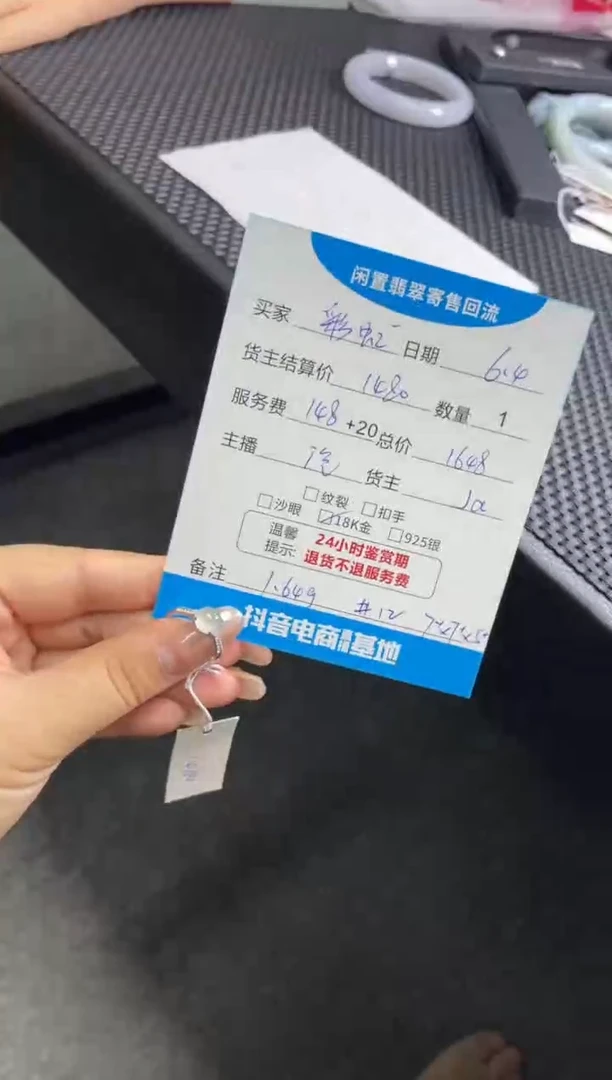 闲置翡翠寄售回流
买家 彩虹 日期 6.4
货主结算价 1480 数量 1
服务费 148 +20 总价 1648
主播 货主
□沙眼 □纹裂 □扣手
☑18K金 □925银
温馨提示: 24小时鉴赏期
退货不退服务费
备注 1.64g #12 7*7*4.5
抖音电商 基地